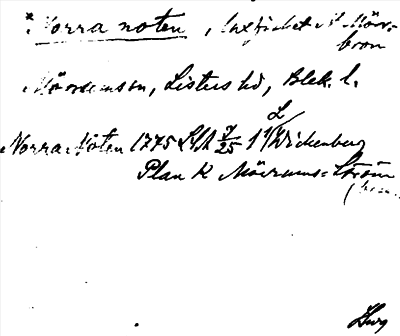 *Norra noten, laxfisket N Mörr-
bron
Mörrums sn, Listers hd, Blek. l.
Norra Noten 1775 LSA 7/25 1 L Wickenberg
Plan K Mörrums= Ström